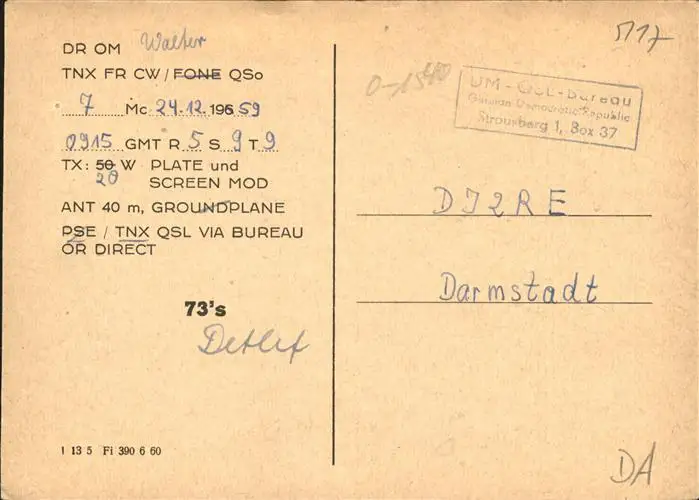 DR OM Walter
TNX FR CW / FONE QSo
7 Mc 24.12. 196 59
0915 GMT R 5 S 9 T 9
TX: 50 W PLATE und
20 SCREEN MOD
ANT 40 m, GROUNDPLANE
PSE / TNX QSL VIA BUREAU
OR DIRECT
73's
Detlef
1 13 5 Fi 390 6 60
M17
DM-QSL-Bureau
German Democratic Republic
Strausberg 1, Box 37
DJ2RE
Darmstadt
DA